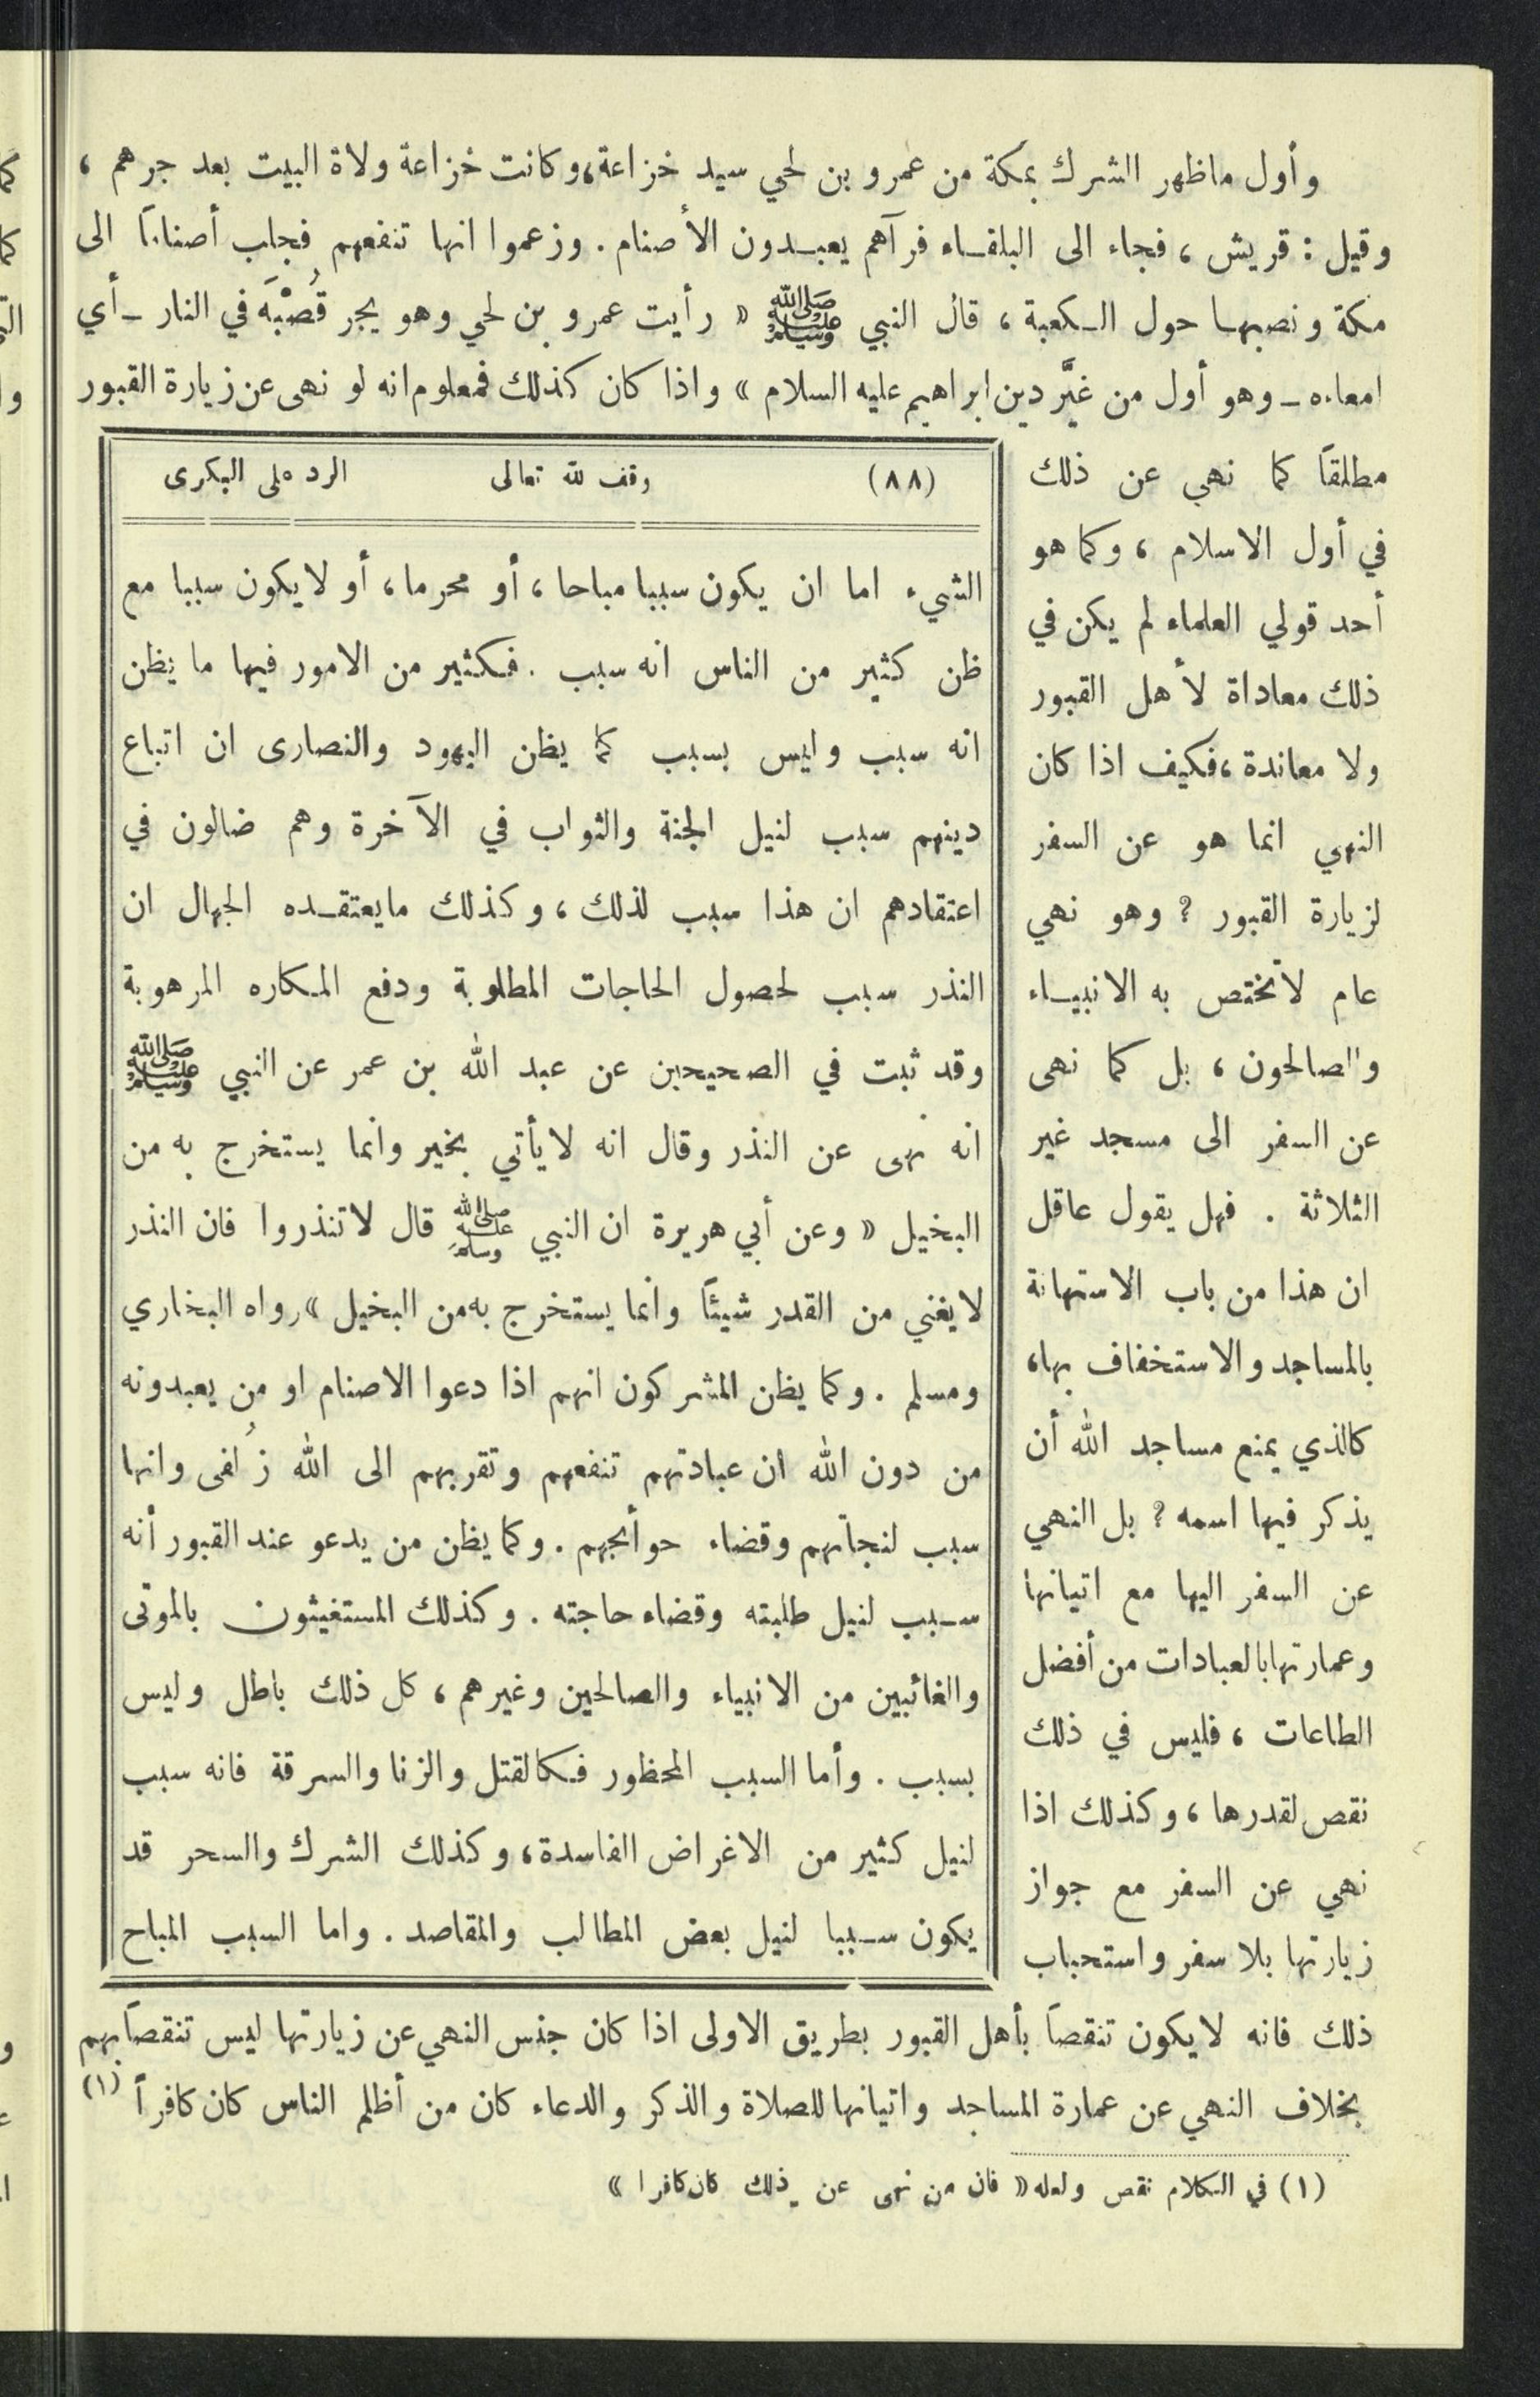 وأول ماظهر الشرك بمكة من عمرو بن لحي سيد خزاعة، وكانت خزاعة ولاة البيت بعد جرهم ،
وقيل : قريش ، فجاء الى البلقاء فرآهم يعبدون الأصنام . وزعموا انها تنفعهم فجلب أصناماً الى
مكة ونصبها حول الكعبة ، قال النبي ﷺ « رأيت عمرو بن لحي وهو يجر قُصْبَه في النار ـ أي
امعاءه ـ وهو أول من غيَّر دين ابراهيم عليه السلام » واذا كان كذلك فمعلوم انه لو نهى عن زيارة القبور
مطلقاً كما نهي عن ذلك
في أول الاسلام ، وكما هو
أحد قولي العلماء لم يكن في
ذلك معاداة لأهل القبور
ولا معاندة ، فكيف اذا كان
النهي انما هو عن السفر
لزيارة القبور ؟ وهو نهي
عام لاتختص به الانبياء
والصالحون ، بل كما نهى
عن السفر الى مسجد غير
الثلاثة . فهل يقول عاقل
ان هذا من باب الاستهانة
بالمساجد والاستخفاف بها،
كالذي يمنع مساجد الله أن
يذكر فيها اسمه ؟ بل النهي
عن السفر اليها مع اتيانها
وعمارتها بالعبادات من أفضل
الطاعات ، فليس في ذلك
نقص لقدرها ، وكذلك اذا
نهي عن السفر مع جواز
زيارتها بلا سفر واستحباب
ذلك فانه لايكون تنقصاً بأهل القبور بطريق الاولى اذا كان جنس النهي عن زيارتها ليس تنقصاً بهم
بخلاف النهي عن عمارة المساجد واتيانها للصلاة والذكر والدعاء كان من أظلم الناس كان كافراً (١)
(٨٨) وقف لله تعالى الرد على البكرى
الشيء اما ان يكون سببا مباحا ، أو محرما ، أو لايكون سببا مع
ظن كثير من الناس انه سبب . فكثير من الامور فيها ما يظن
انه سبب وليس بسبب كما يظن اليهود والنصارى ان اتباع
دينهم سبب لنيل الجنة والثواب في الآخرة وهم ضالون في
اعتقادهم ان هذا سبب لذلك ، وكذلك مايعتقده الجهال ان
النذر سبب لحصول الحاجات المطلوبة ودفع المكاره المرهوبة
وقد ثبت في الصحيحين عن عبد الله بن عمر عن النبي ﷺ
انه نهى عن النذر وقال انه لايأتي بخير وانما يستخرج به من
البخيل « وعن أبي هريرة ان النبي ﷺ قال لاتنذروا فان النذر
لايغني من القدر شيئاً وانما يستخرج به من البخيل » رواه البخاري
ومسلم . وكما يظن المشركون انهم اذا دعوا الاصنام او من يعبدونه
من دون الله ان عبادتهم تنفعهم وتقربهم الى الله زُلفى وانها
سبب لنجاتهم وقضاء حوائجهم . وكما يظن من يدعو عند القبور أنه
سبب لنيل طلبته وقضاء حاجته . وكذلك المستغيثون بالموتى
والغائبين من الانبياء والصالحين وغيرهم ، كل ذلك باطل وليس
بسبب . وأما السبب المحظور فكالقتل والزنا والسرقة فانه سبب
لنيل كثير من الاغراض الفاسدة ، وكذلك الشرك والسحر قد
يكون سببا لنيل بعض المطالب والمقاصد . واما السبب المباح
(١) في الكلام نقص ولعله « فان من نهى عن ذلك كان كافرا »